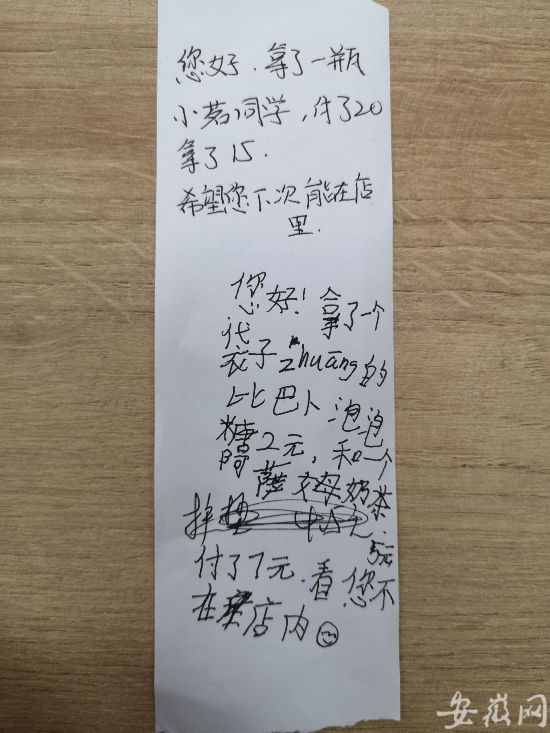 您好.拿了一瓶
小茗同学,付了20
拿了15.
希望您下次能在店
里.
您好!拿了一个
袋子zhuāng的
比巴卜泡泡
糖2元,和一个
奶茶.
5元
付了7元.看您不
在店内
安徽网